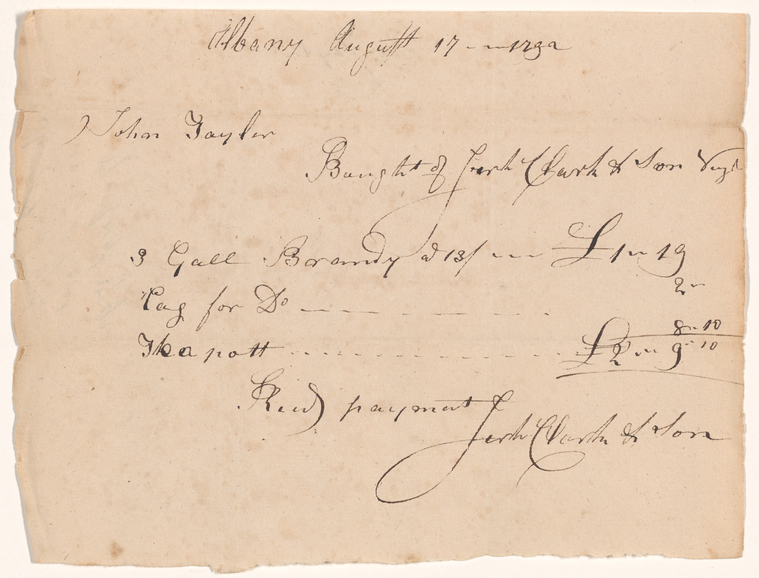 Albany August 17 -- 1792
John Tayler
Bought of Jerh Clark & Son
3 Gall Brandy @ 13/ --- £1 -- 19
Cag for Do - - - - - - - - 2 -
Tea pott - - - - - - - - 8 - 10
£2 -- 9 - 10
Recd payment Jerh Clark & Son